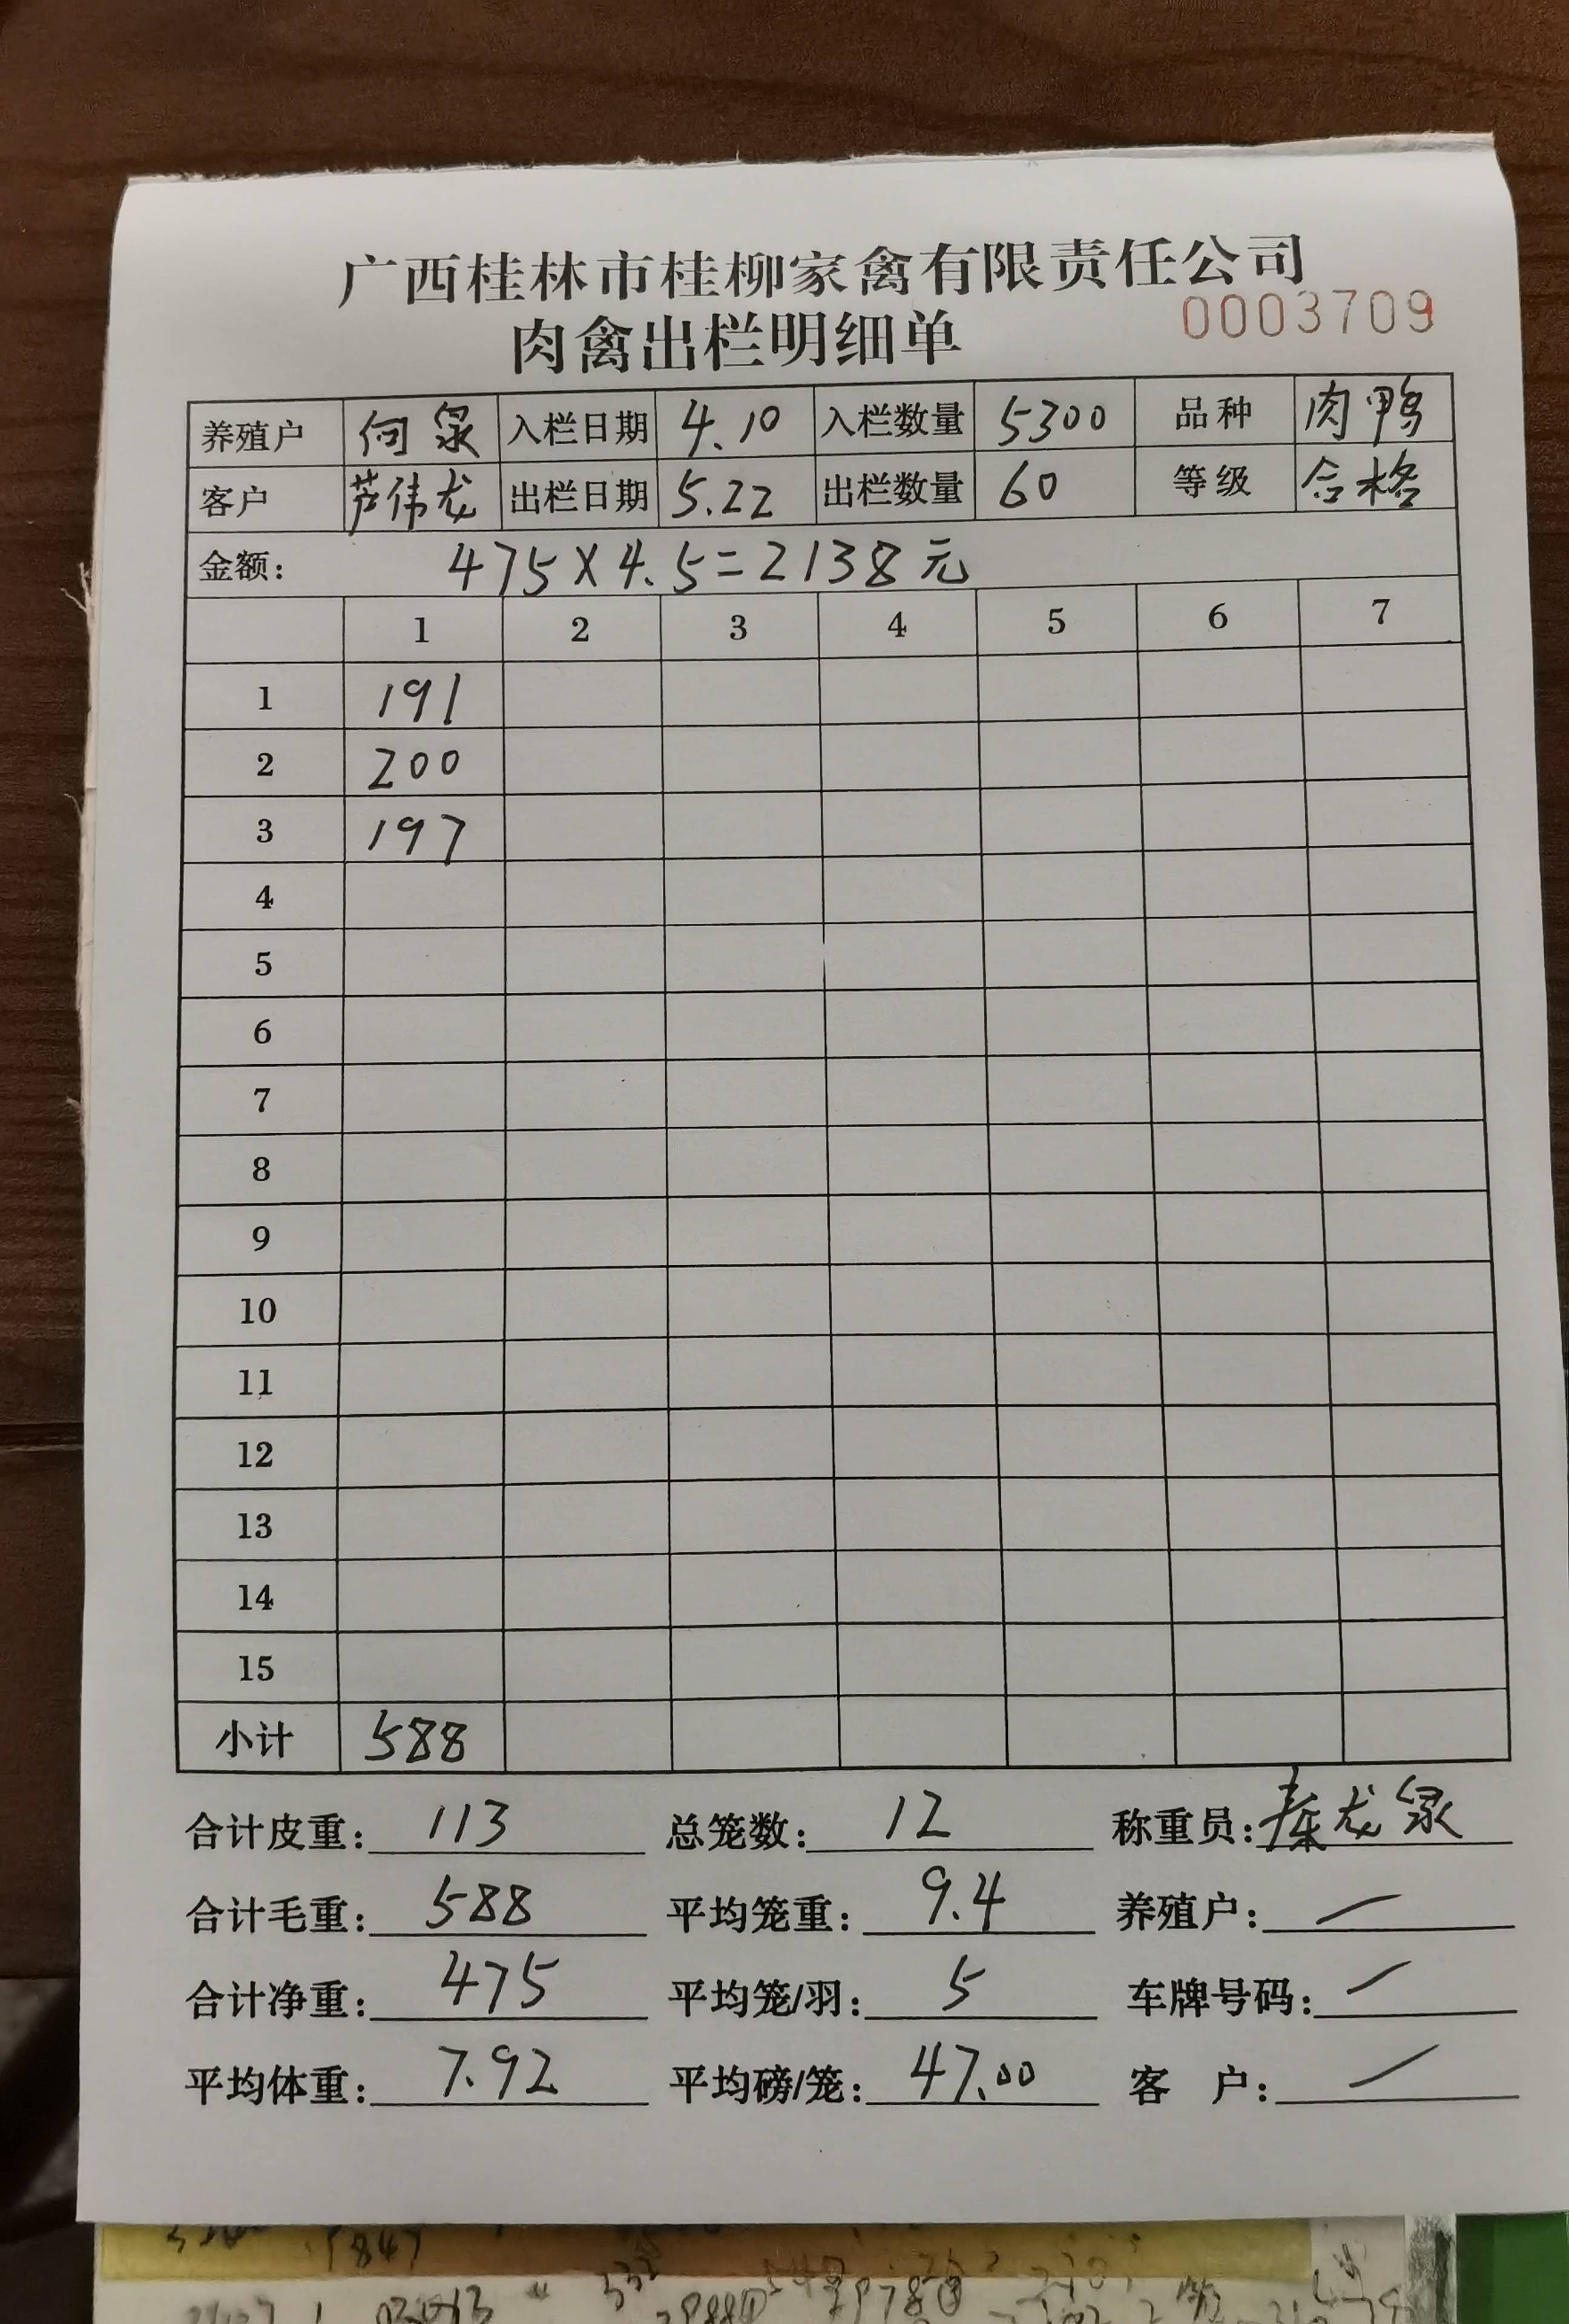 广西桂林市桂柳家禽有限责任公司
肉禽出栏明细单 0003709
养殖户 何泉 入栏日期 4.10 入栏数量 5300 品种 肉鸭
客户 芦伟龙 出栏日期 5.22 出栏数量 60 等级 合格
金额: 475×4.5=2138元
1 2 3 4 5 6 7
1 191
2 200
3 197
4
5
6
7
8
9
10
11
12
13
14
15
小计 588
合计皮重: 113 总笼数: 12 称重员: 秦龙泉
合计毛重: 588 平均笼重: 9.4 养殖户: /
合计净重: 475 平均笼/羽: 5 车牌号码: /
平均体重: 7.92 平均磅/笼: 47.00 客户: /
9847